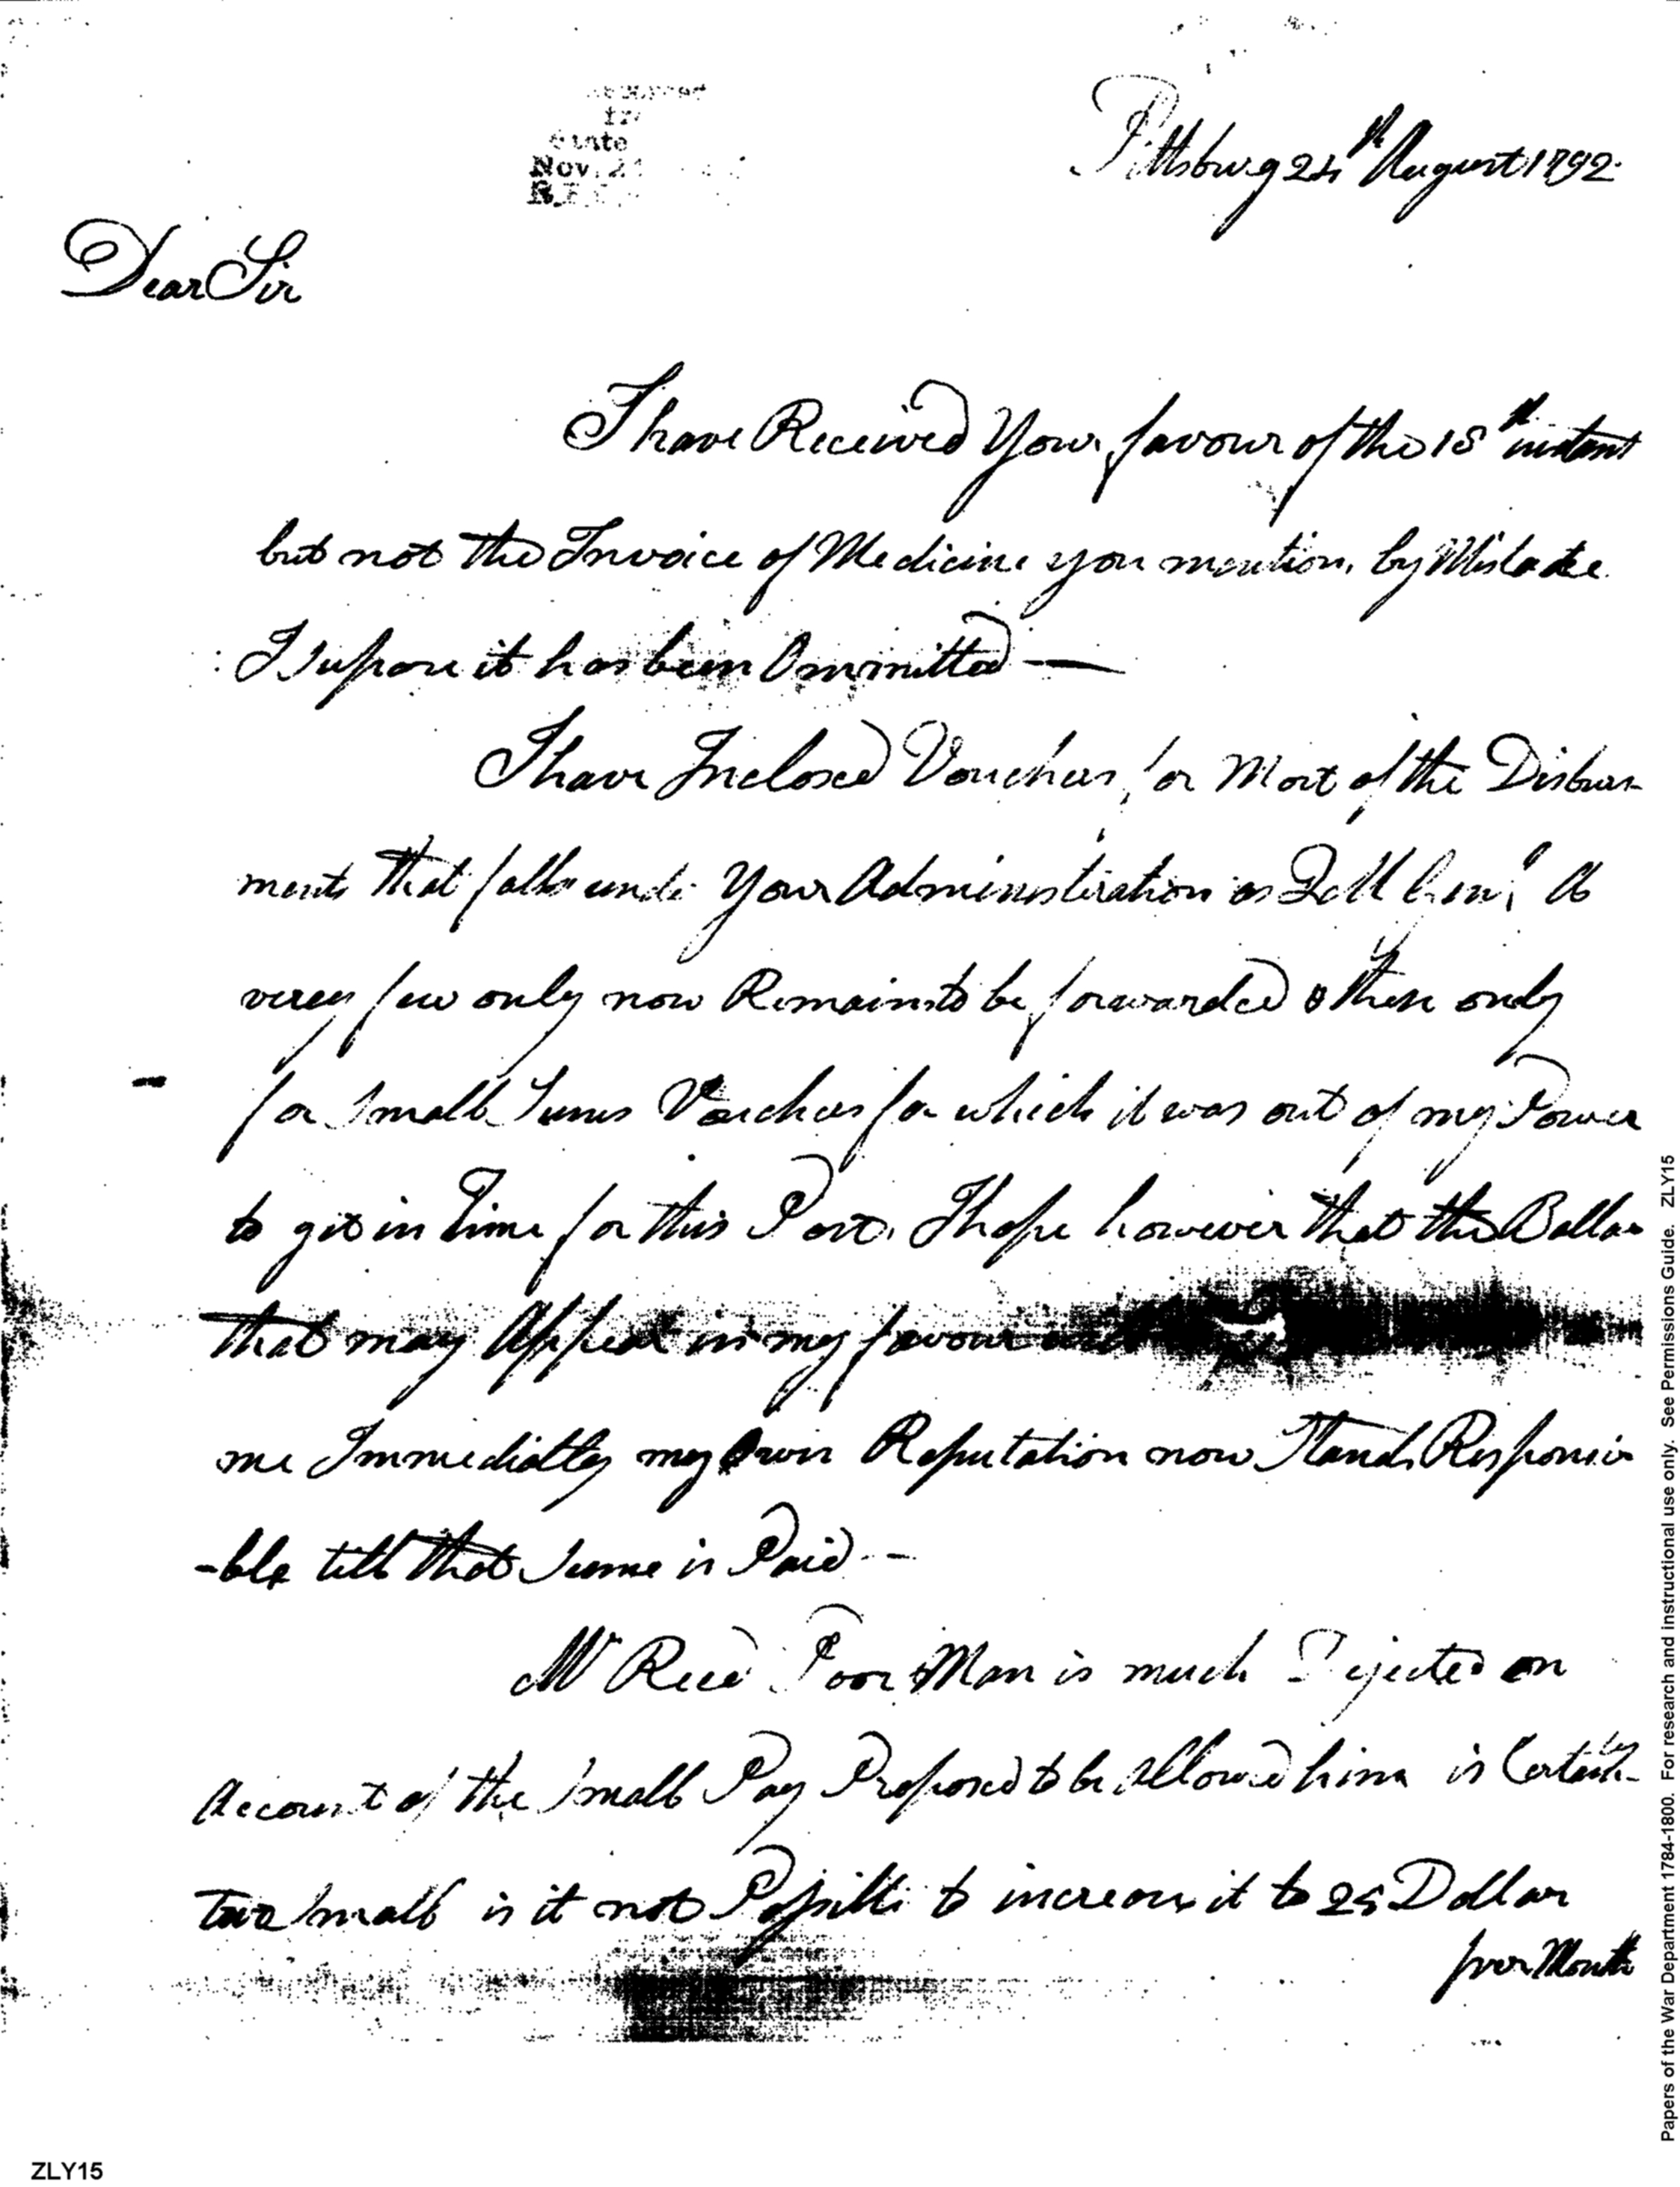 Pittsburg 24th August 1792
State
Nov. 2
Dear Sir
I have Received Your favour of the 18th instant
but not the Invoice of Medicine you mention, by Mistake
I Supose it has been Ommitted —
I have Inclosed Vouchers for Most of the Disburs-
ments that falls under Your Administration as QrMr Genl. A
verey few only now Remains to be forwarded & these only
for Small Sums Vouchers for which it was out of my Power
to git in Time for this Post. I hope however that the Ballan
that may Appear in my favour
me Immediatly my Own Reputation now Stands Responsi
-ble till that Sume is Paid —
Mr Reed Poor Man is much Dejected on
Account of the Small Pay Proposed to be Allowed him is Certainly
two Small is it not Possible to increase it to 25 Dollar
per Month
Papers of the War Department 1784-1800. For research and instructional use only. See Permissions Guide. ZLY15
ZLY15